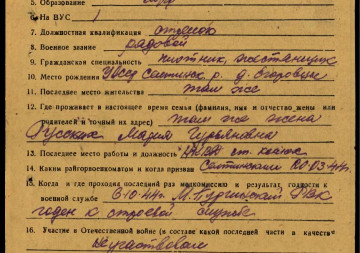 5. Образование
6. На ВУС 1
7. Должностная квалификация стрелок
8. Военное звание рядовой
9. Гражданская специальность плотник, жестянщик
10. Место рождения Селтинск р. д.
11. Последнее место жительства там же
12. Где проживает в настоящее время семья (фамилия, имя и отчество жены или
родителей и точный их адрес) там же жена
Русских Мария Гурьяновна
13. Последнее место работы и должность
14. Каким райгорвоенкоматом и когда призван Селтинским
15. Когда и где проходил последний раз медкомиссию и результат годности к
военной службе 6-10-44г.
годен к строевой службе
16. Участие в Отечественной войне (в составе какой последней части, в качестве
Не участвовал